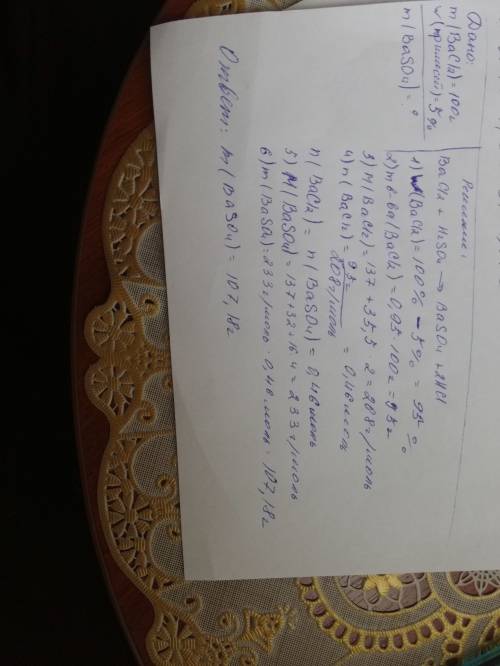 Дано:
m(BaCl2)=100г
w(примесей)=5%
m(BaSO4)=?
Решение:
BaCl2 + H2SO4 → BaSO4 + 2HCl
1) w(BaCl2)=100% - 5% = 95%
2) m в-ва(BaCl2)=0,95·100г=95г
3) M(BaCl2)=137+35,5·2=208г/моль
4) n(BaCl2)= 95г / 208г/моль = 0,46моль
n(BaCl2)=n(BaSO4)=0,46моль
5) M(BaSO4)=137+32+16·4=233г/моль
6) m(BaSO4)=233г/моль·0,46моль=107,18г
Ответ: m(BaSO4)=107,18г